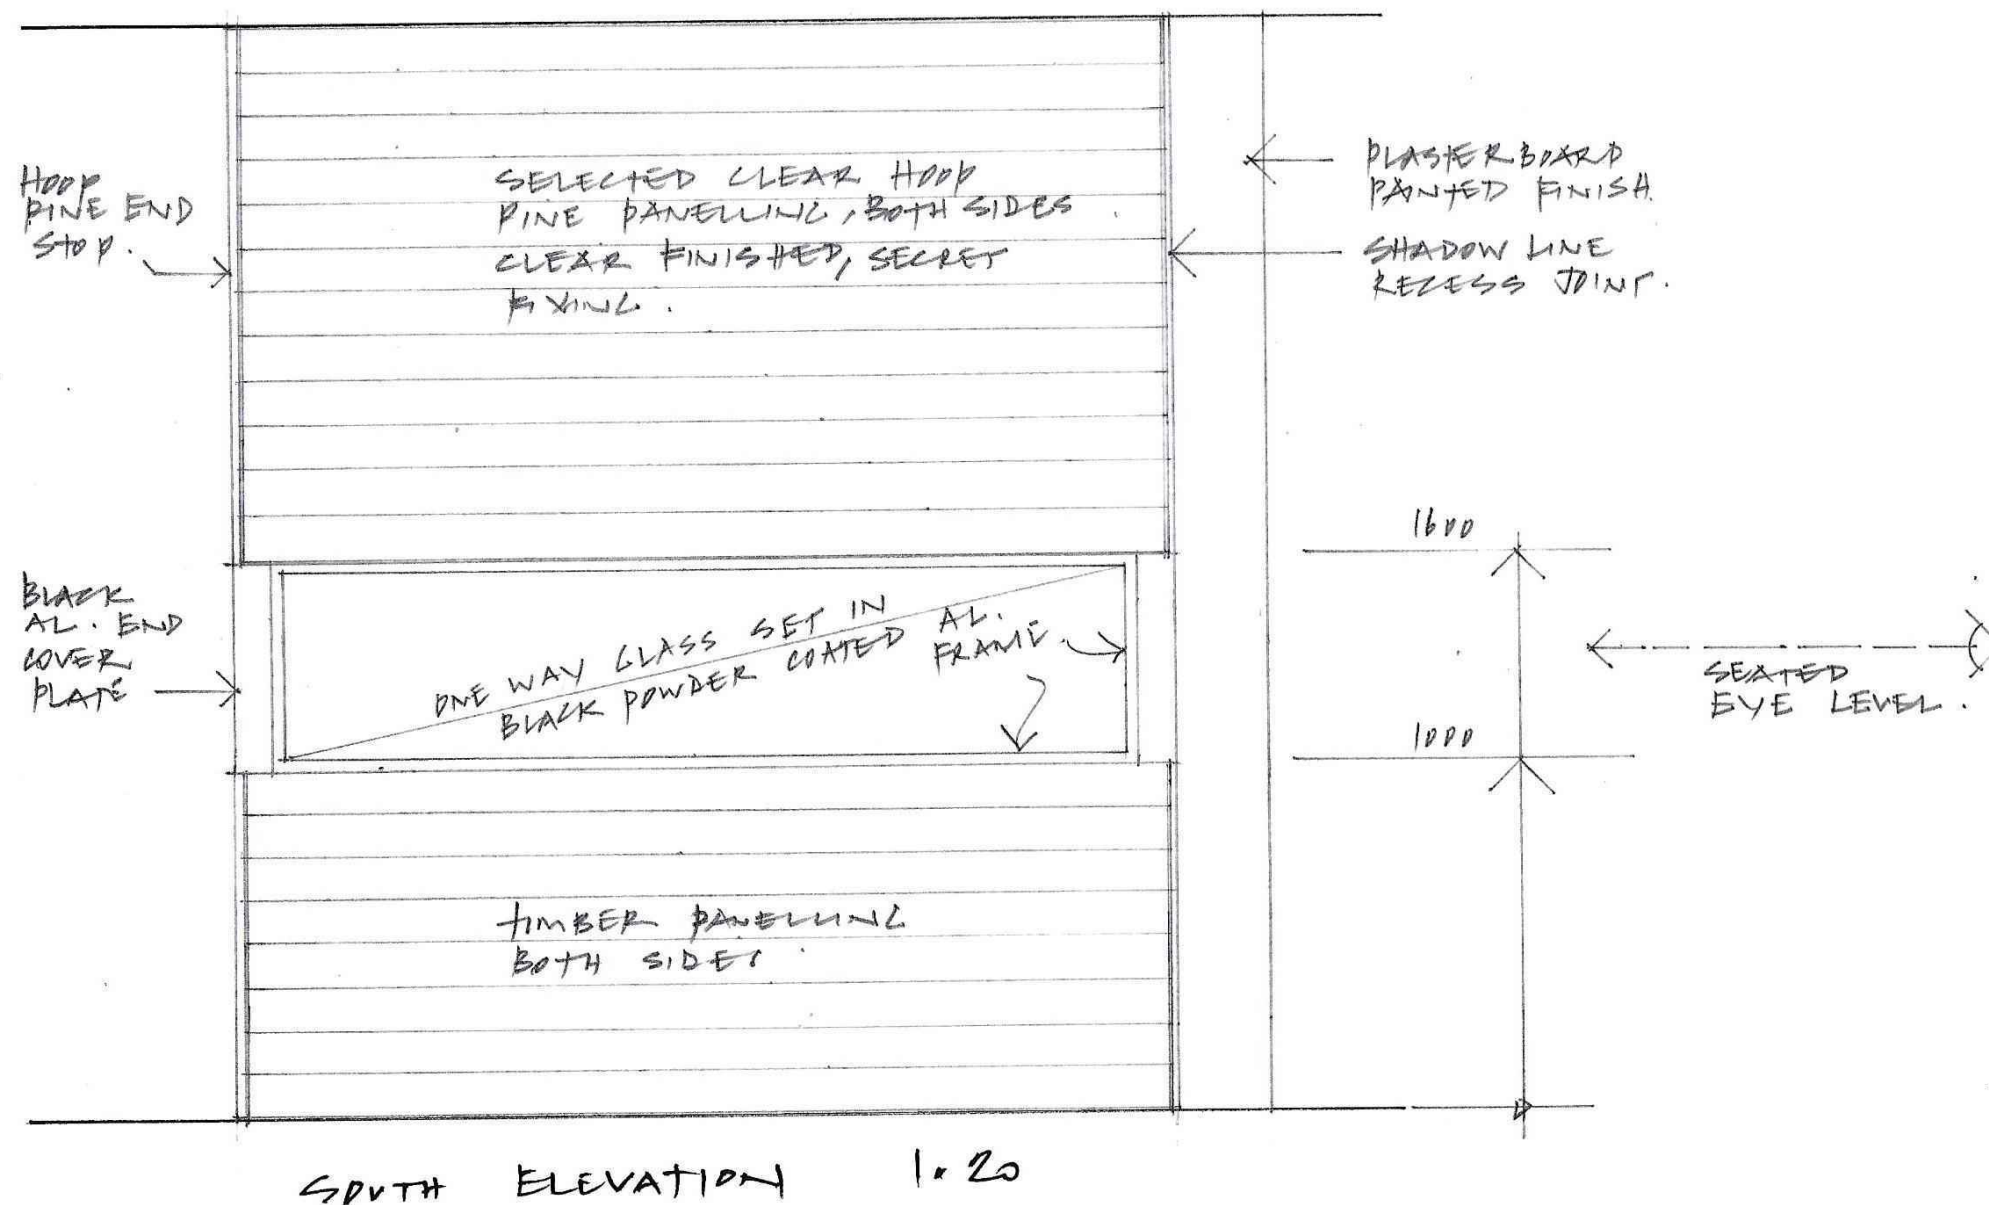 HOOP
PINE END
STOP.
SELECTED CLEAR HOOP
PINE PANELLING, BOTH SIDES
CLEAR FINISHED, SECRET
FIXING.
PLASTERBOARD
PAINTED FINISH.
SHADOW LINE
RECESS JOINT.
BLACK
AL. END
COVER
PLATE
ONE WAY GLASS SET IN
BLACK POWDER COATED AL.
FRAME.
1600
1000
SEATED
EYE LEVEL.
TIMBER PANELLING
BOTH SIDES
SOUTH ELEVATION 1:20